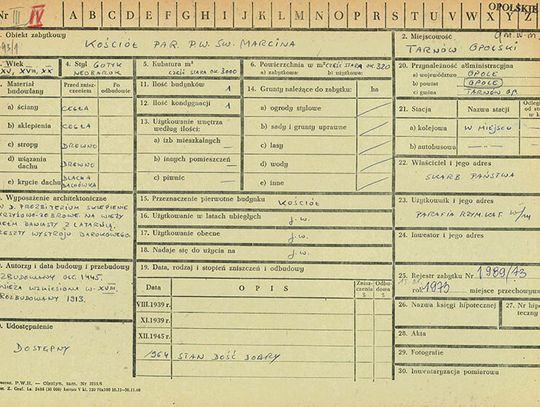 Nr III IV
A B C D E F G H I J K L Ł M N O P R S T U V W X Y Z
OPOLSKIE
Obiekt zabytkowy
KOŚCIÓŁ PAR. P.W. ŚW. MARCINA
2. Miejscowość
TARNÓW OPOLSKI
Wiek
XV, XVII, XX
4. Styl GOTYK
NEOBAROK
5. Kubatura m³
CZĘŚĆ STARA OK. 3000
6. Powierzchnia w m² CZĘŚĆ STARA OK. 320
20. Przynależność administracyjna
a) województwo OPOLE
b) powiat OPOLE
c) gmina TARNÓW OP.
Materiał budowlany
Przed zniszczeniem
Po odbudowie
a) ściany CEGŁA
b) sklepienia CEGŁA
c) stropy DREWNO
d) wiązania dachu DREWNO
e) krycie dachu BLACHA DACHÓWKA
11. Ilość budynków 1
12. Ilość kondygnacji 1
13. Użytkowanie wnętrza według ilości:
a) izb mieszkalnych —
b) innych pomieszczeń —
c) piwnic —
14. Grunty należące do zabytku: ha
a) ogrody stylowe
b) sady i grunty uprawne
c) lasy
d) wody
e) inne
21. Stacja
Nazwa stacji
a) kolejowa W MIEJSCU
b) autobusowa
22. Właściciel i jego adres
SKARB PAŃSTWA
15. Przeznaczenie pierwotne budynku KOŚCIÓŁ
16. Użytkowanie w latach ubiegłych j.w.
17. Użytkowanie obecne j.w.
18. Nadaje się do użycia na j.w.
23. Użytkownik i jego adres
PARAFIA RZYM. KAT. w/m
24. Inwestor i jego adres
Wyposażenie architektoniczne
PREZBITERIUM SKLEPIENIE
KRZYŻOWO-ŻEBROWE. NA WIEŻY
HEŁM BANIASTY Z LATARNIĄ.
RESZTY WYSTROJU BAROKOWEGO.
Autorzy i data budowy i przebudowy
ZBUDOWANY OK. 1445.
WIEŻA WZNIESIONA W XVII.
ROZBUDOWANY 1913.
Udostępnienie
DOSTĘPNY
19. Data, rodzaj i stopień zniszczeń i odbudowy
Data
OPIS
VIII.1939 r.
XI.1939 r.
XII.1945 r.
1964 STAN DOŚĆ DOBRY
25. Rejestr zabytku Nr 1989/73
rok 1973 miejsce przechowy
26. Nazwa księgi hipotecznej
27. Nr hipoteczny
28. Akta
29. Fotografie
30. Inwentaryzacja pomiarowa